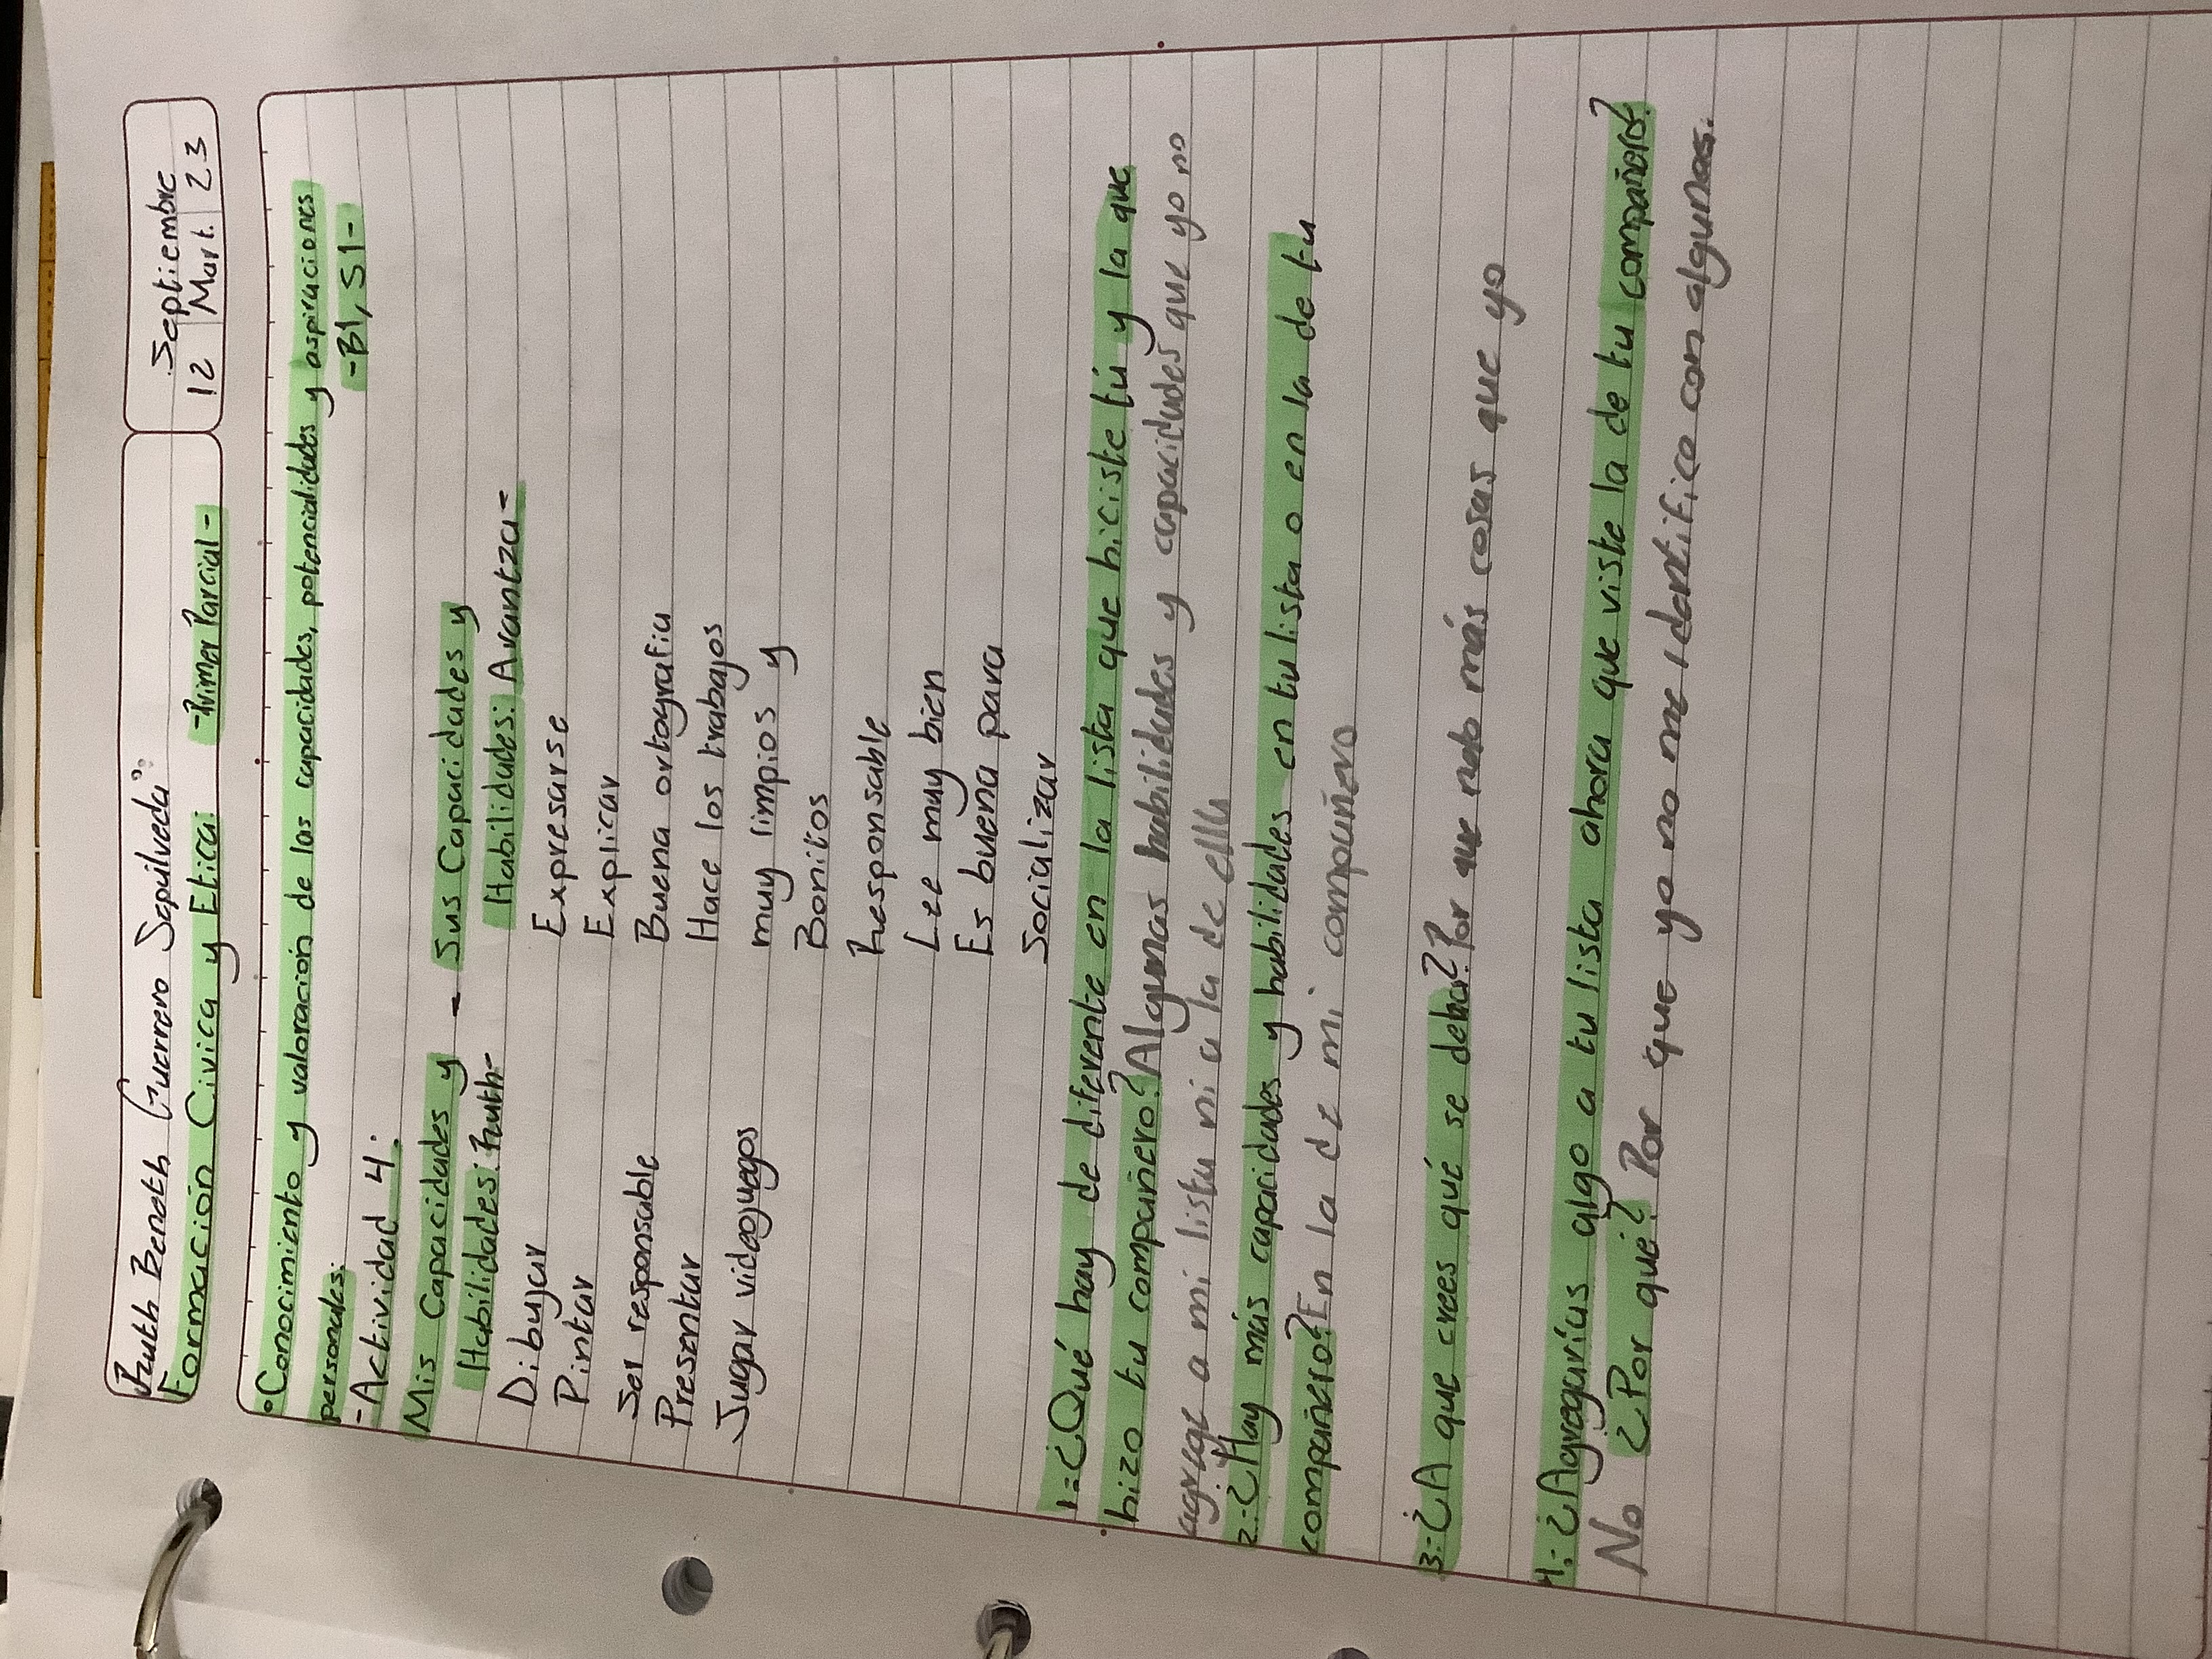 Ruth Benath Guerrero Sepulveda
Septiembre
Formación Civica y Etica -Primer Parcial-
12 Mart. 23
• Conocimiento y valoración de las capacidades, potencialidades y aspiraciones
personales. -B1, S1-
-Actividad 4:
Mis Capacidades y
Habilidades: Ruth-
Dibujar
Pintar
Ser responsable
Presentar
Jugar videojuegos
- Sus Capacidades y
Habilidades: Arantza-
Expresarse
Explicar
Buena ortografia
Hace los trabajos
muy limpios y
Bonitos
Responsable
Lee muy bien
Es buena para
Socializar
1=¿Qué hay de diferente en la lista que hiciste tú y la que
hizo tu compañero? Algunas habilidades y capacidades que yo no
agrege a mi lista ni a la de ella
2:-¿Hay más capacidades y habilidades en tu lista o en la de tu
compañero? En la de mi compañero
3:-¿A que crees qué se deba? Por que noto más cosas que yo
4:-¿Agregarías algo a tu lista ahora que viste la de tu compañero?
¿Por qué? Por que yo no me identifico con algunas.
No